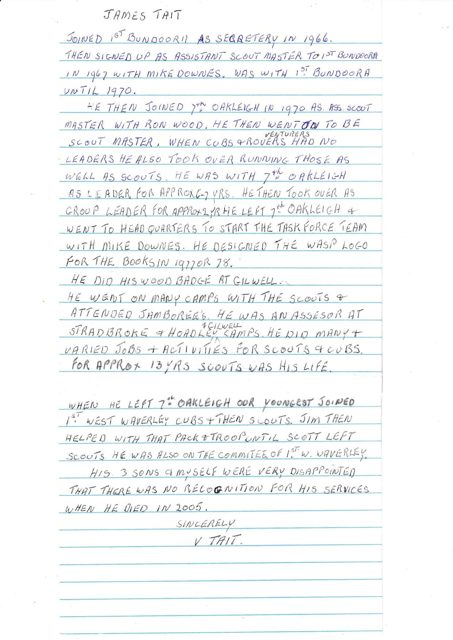 JAMES TAIT
JOINED 1ST BUNDOORA AS SECRETERY IN 1966.
THEN SIGNED UP AS ASSISTANT SCOUT MASTER TO 1ST BUNDOORA
IN 1967 WITH MIKE DOWNES. WAS WITH 1ST BUNDOORA
UNTIL 1970.
HE THEN JOINED 7TH OAKLEIGH IN 1970 AS ASS SCOUT
MASTER WITH RON WOOD. HE THEN WENT ON TO BE
SCOUT MASTER, WHEN CUBS & ROVERS VENTURERS HAD NO
LEADERS HE ALSO TOOK OVER RUNNING THOSE AS
WELL AS SCOUTS. HE WAS WITH 7TH OAKLEIGH
AS LEADER FOR APPROX 6-7 YRS. HE THEN TOOK OVER AS
GROUP LEADER FOR APPROX 2 YR HE LEFT 7TH OAKLEIGH &
WENT TO HEAD QUARTERS TO START THE TASK FORCE TEAM
WITH MIKE DOWNES. HE DESIGNED THE WASP LOGO
FOR THE BOOKS IN 1977 OR 78.
HE DID HIS WOOD BADGE AT GILWELL.
HE WENT ON MANY CAMPS WITH THE SCOUTS &
ATTENDED JAMBOREE'S. HE WAS AN ASSESOR AT
STRADBROKE & HOADLEY & GILWELL CAMPS. HE DID MANY &
VARIED JOBS & ACTIVITIES FOR SCOUTS & CUBS.
FOR APPROX 13 YRS SCOUTS WAS HIS LIFE.
WHEN HE LEFT 7TH OAKLEIGH OUR YOUNGEST JOINED
1ST WEST WAVERLEY CUBS & THEN SCOUTS. JIM THEN
HELPED WITH THAT PACK & TROOP UNTIL SCOTT LEFT
SCOUTS HE WAS ALSO ON THE COMMITEE OF 1ST W. WAVERLEY.
HIS 3 SONS & MYSELF WERE VERY DISAPPOINTED
THAT THERE WAS NO RECOGNITION FOR HIS SERVICES
WHEN HE DIED IN 2005.
SINCERELY
V TAIT.